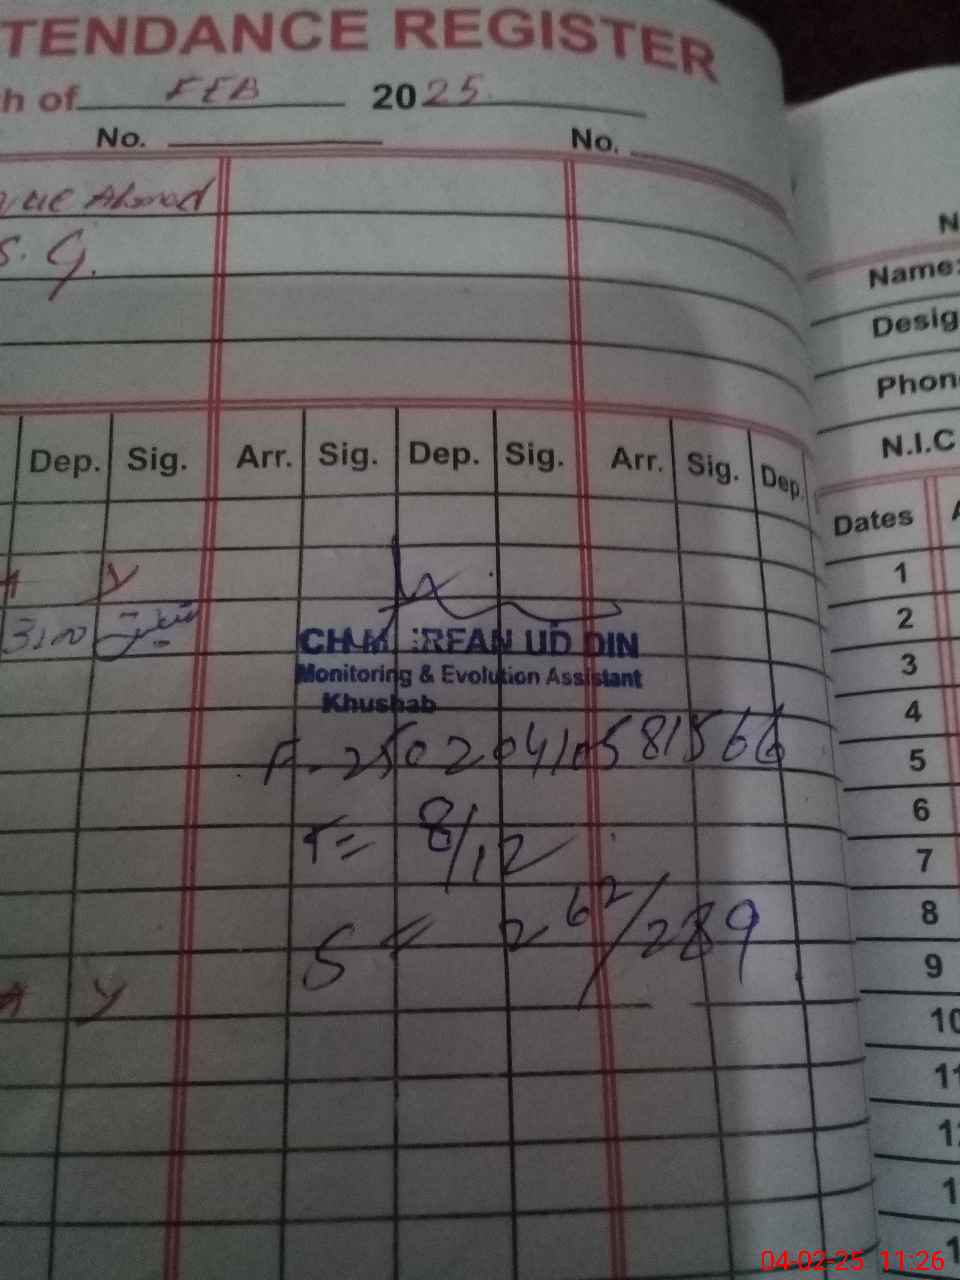 TENDANCE REGISTER
h of FEB 2025
No. No.
Ahmad
S. G.
Dep. Sig. Arr. Sig. Dep. Sig. Arr. Sig. Dep.
A Y
CH.M IRFAN UD DIN
Monitoring & Evolution Assistant
Khushab
F- 25020410581566
T= 8/12
S = 262/289
A Y
N
Name:
Desig
Phon
N.I.C
Dates A
1
2
3
4
5
6
7
8
9
10
11
04-02-25 11:26